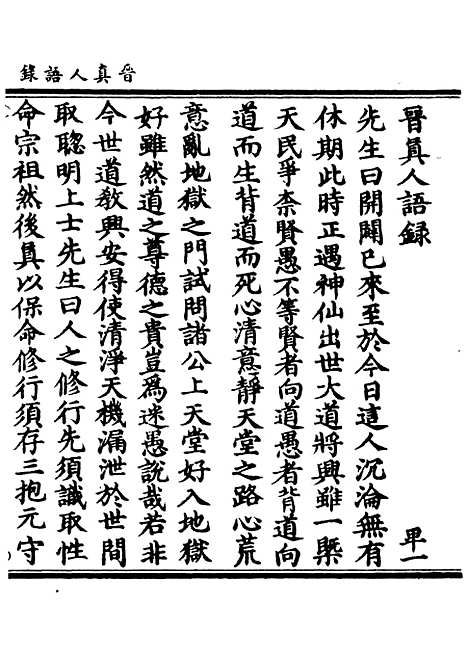 晉真人語錄
晉真人語錄 卑一
先生曰開闢已來至於今日這人沉淪無有
休期此時正遇神仙出世大道將興雖一槩
天民爭柰賢愚不等賢者向道愚者背道向
道而生背道而死心清意靜天堂之路心荒
意亂地獄之門試問諸公上天堂好入地獄
好雖然道之尊德之貴豈爲迷愚說哉若非
今世道敎興安得使清淨天機漏泄於世間
取聦明上士先生曰人之修行先須識取性
命宗祖然後真以保命修行須存三抱元守